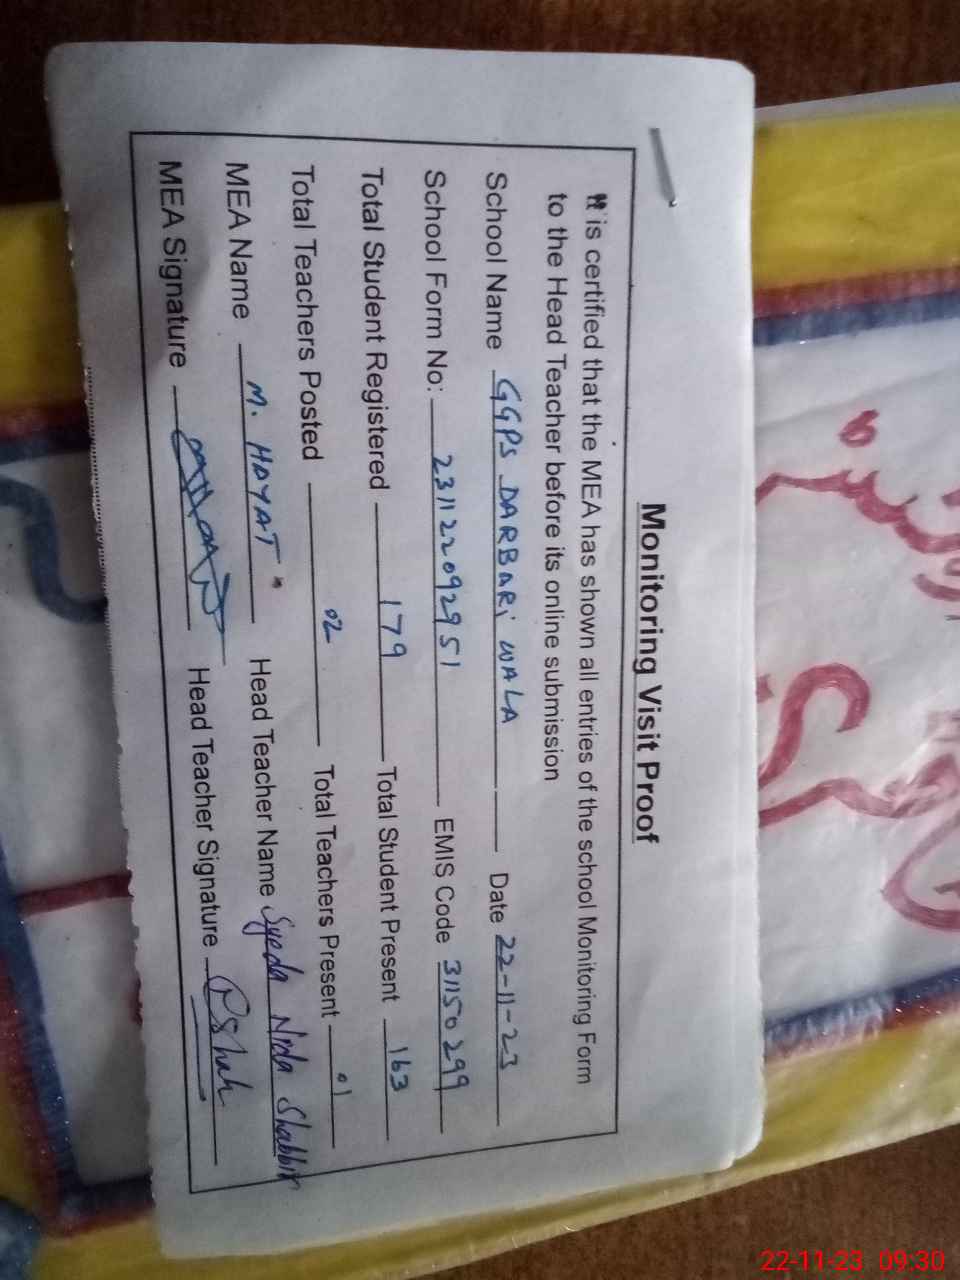 Monitoring Visit Proof
It is certified that the MEA has shown all entries of the school Monitoring Form
to the Head Teacher before its online submission
School Name GGPS DARBARI WALA Date 22-11-23
School Form No: 231122092951 EMIS Code 31150299
Total Student Registered 179 Total Student Present 163
Total Teachers Posted 02 Total Teachers Present 01
MEA Name M. HAYAT Head Teacher Name Syeda Nida Shabbir
MEA Signature Head Teacher Signature
22-11-23 09:30